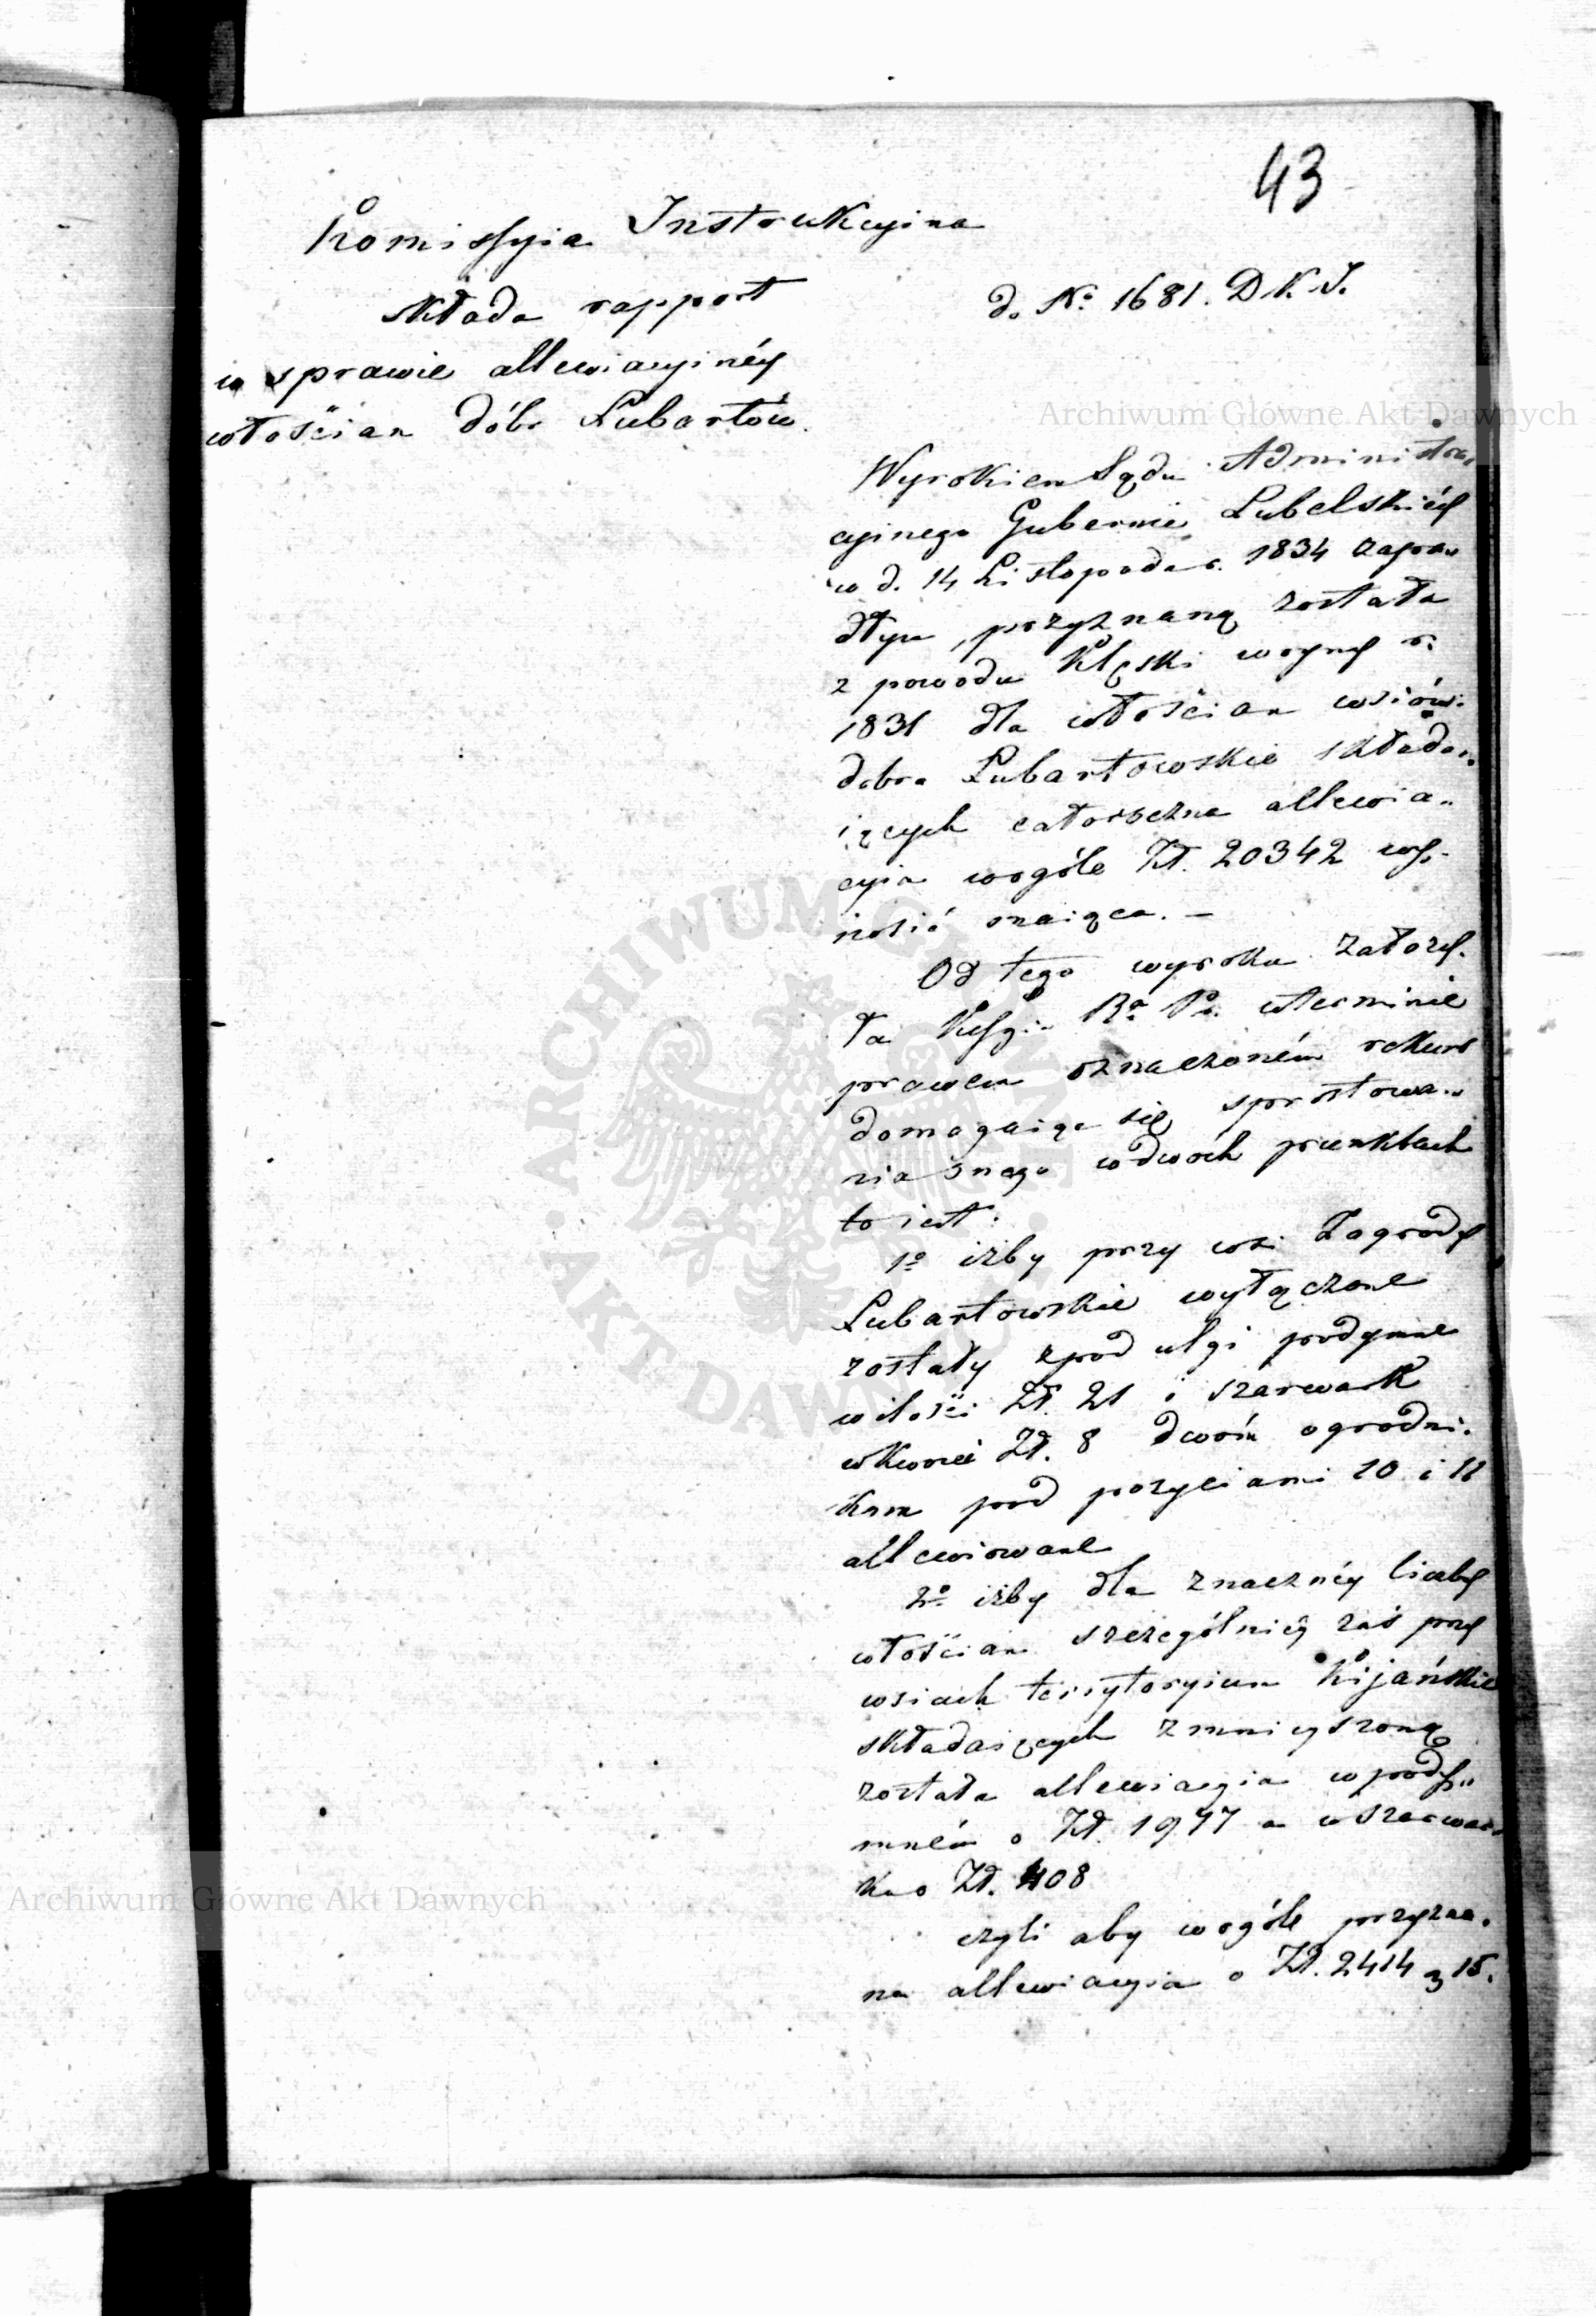 43
Kommissyia Instrukcyina
składa rapport
w sprawie allewiacyinéy
włościan dóbr Lubartów.
d. No 1681. D K. I.
Archiwum Główne Akt Dawnych
Wyrokiem Sądu Administra„
cyinego Gubernii Lubelskiéy
w d. 14 Listopada r. 1834 zapa„
dłym, przyznaną została
z powodu klęski woyny r.
1831 dla włościan wsiów
dobra Lubartowskie składa„
iących całoroczna allewia„
cyia wogóle Zł. 20342 wy„
nosić maiąca. —
Od tego wyroku założy„
ła w terminie
prawem oznaczoném rekurs
domagaiąc się sprostowa„
nia onego w dwóch punktach
to iest:
1o iżby przy wsi Zagrody
Lubartowskie wyłączone
zostały zpod ulgi podymne
w ilości Zł. 21 i szarwark
w kwocie Zł. 8 dwóm ogrodni„
kom pod pozyciami 10 i 11
allewiowane
2o iżby dla znacznéy liczby
włościan szczególniéy zaś przy
wsiach territoryium Kijańskie
składaiących zmnieyszoną
została allewiacyia w pody„
mném o Zł. 1977 a w szarwar„
ku o Zł. 408
czyli aby wogóle przyzna„
na allewiacyia o Zł. 2414 g 15.
Archiwum Główne Akt Dawnych
ARCHIWUM GŁÓWNE AKT DAWNYCH